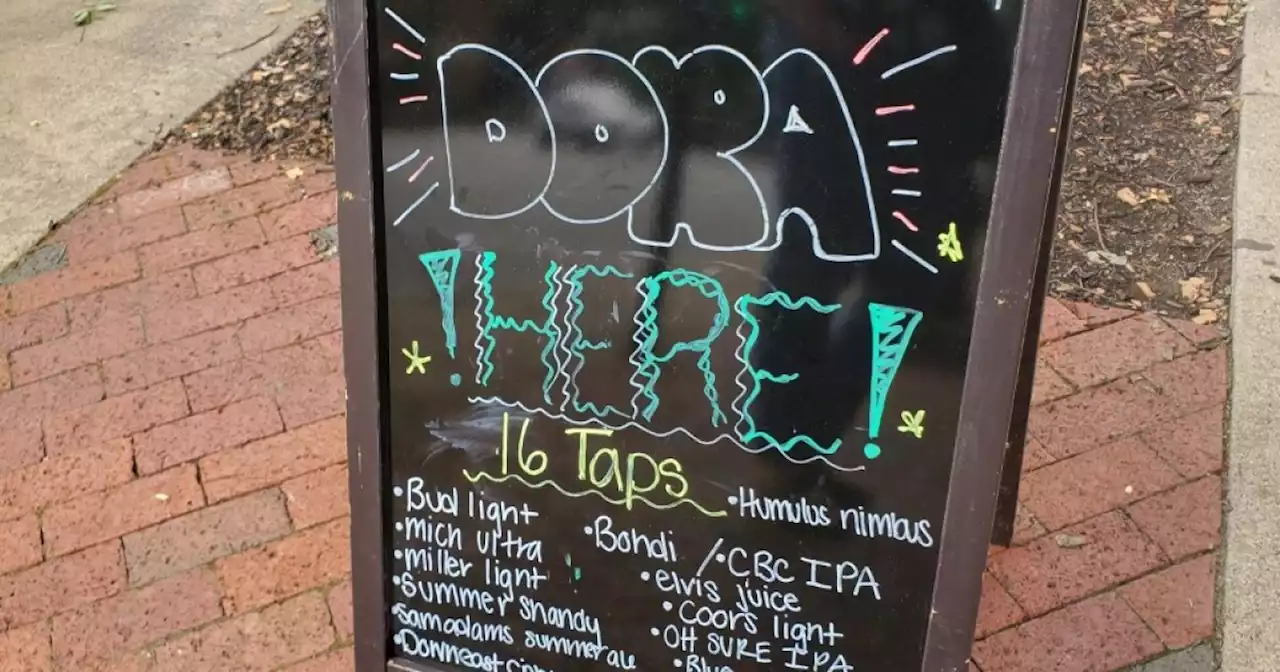 DORA
!HERE!
16 Taps
•Bud light
•mich ultra
•miller light
•Summer Shandy
•Samadams summer ale
•Downeast
•Bohdi
•elvis juice
•Coors light
•OH SURE IPA
•Humulus nimbus
/•CBC IPA